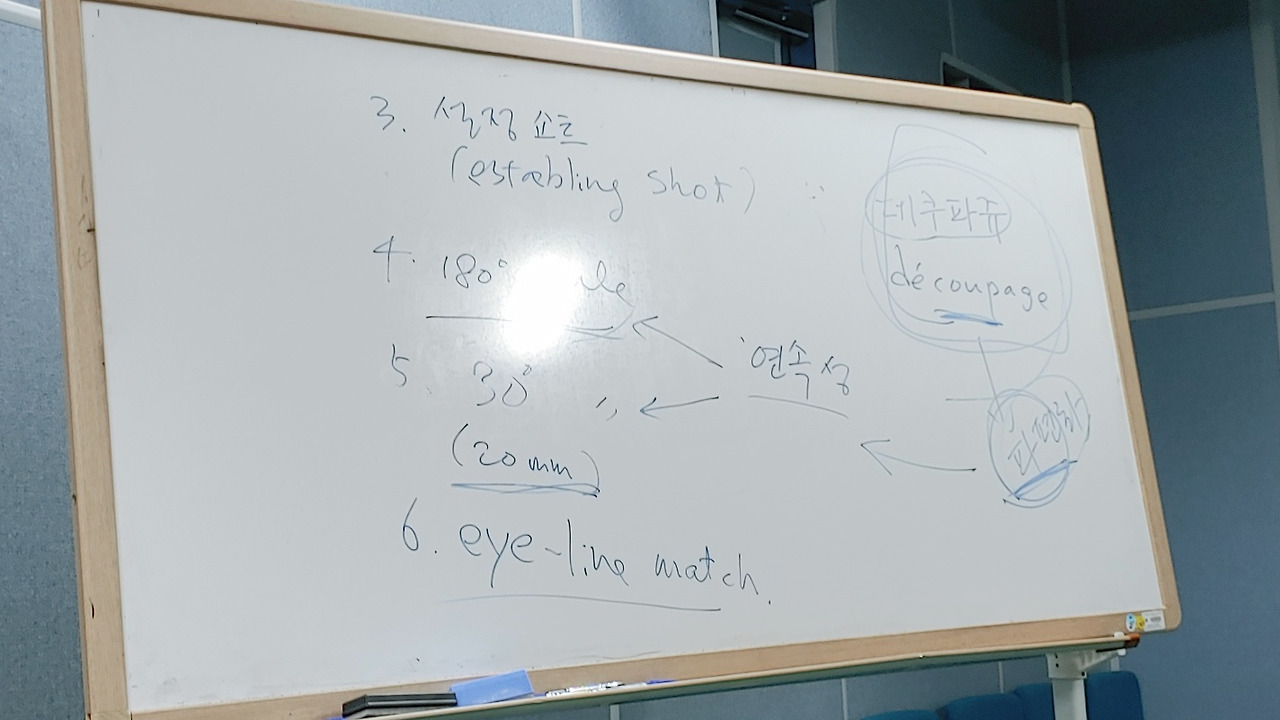 3. 설정 쇼트
(establing shot)
4. 180°
5. 30° 〃
(20mm)
6. eye-line match.
연속성
데쿠파쥬
découpage
파편화